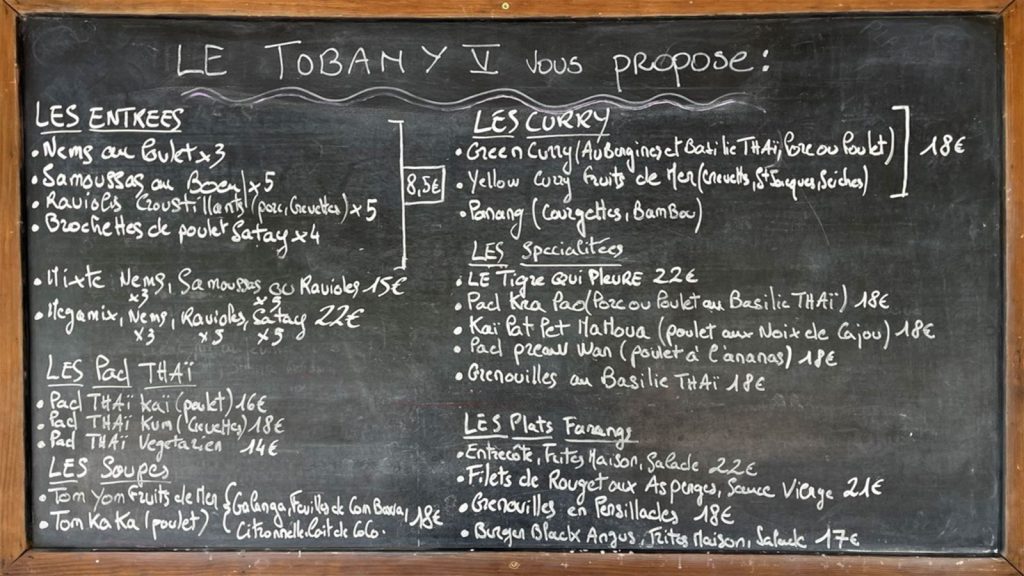 LE TOBANY V vous propose:
LES ENTREES
• Nems au Poulet x3
• Samoussas au Boeuf x5
• Raviolis Croustillants (porc, Crevettes) x5
• Brochettes de poulet Satay x4
8,5€
• Mixte Nems, Samoussas ou Ravioles 15€
x3 x5
• Megamix, Nems, Ravioles, Satay 22€
x3 x5 x5
LES Pad THAÏ
• Pad THAÏ Kaï (poulet) 16€
• Pad THAÏ Kum (Crevettes) 18€
• Pad THAÏ Vegetarien 14€
LES Soupes
• Tom Yom Fruits de Mer
• Tom KaKa (poulet)
Galanga, Feuilles de
Citronnelle, Lait de CoCo.
18€
LES CURRY
• Green Curry (AuBergines) et Basilic THAÏ, Porc ou Poulet)
• Yellow Curry Fruits de Mer (Crevetts, St Jacques, Seiches)
• Panang (Courgettes, BamBou)
18€
LES Specialitées
• LE Tigre qui Pleure 22€
• Pad Kra Pao (Porc ou Poulet au Basilic THAÏ) 18€
• Kai Pat Pet MaMoua (poulet aux Noix de Cajou) 18€
• Pad preaw Wan (poulet à l'ananas) 18€
• Grenouilles au Basilic THAÏ 18€
LES Plats Farangs
• Entrecôte, Frites Maison, Salade 22€
• Filets de Rouget aux Asperges, Sauce Vierge 21€
• Grenouilles en Persillades 18€
• Burger Black Angus, Frites Maison, Salade 17€